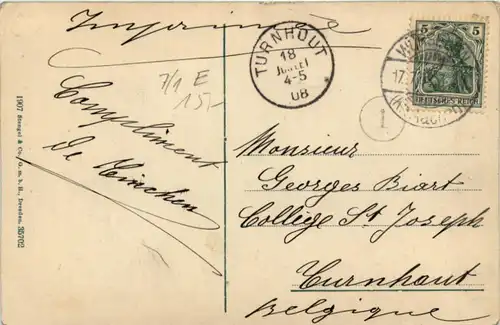 Imprimé
7/1 E
15,-
TURNHOUT
18
JUILLET
4-5
08
5 5
DEUTSCHES REICH
17.7.
1
Compliment
de
Monsieur
Georges Biart
Collège St Joseph
Turnhout
Belgique
1907 Stengel & Co., G. m. b. H., Dresden. 35702